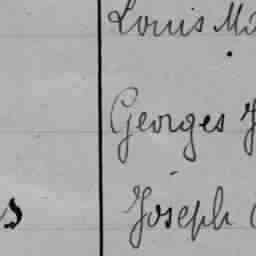 Louis
Georges
Joseph